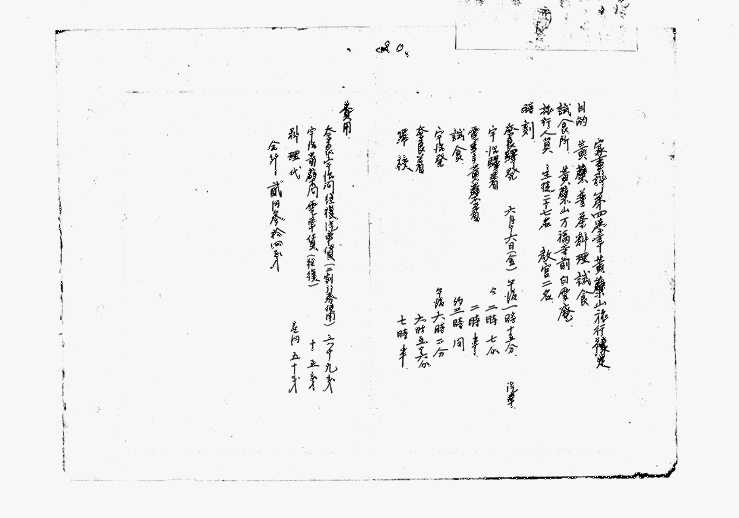 家事科第四学年黄檗山旅行豫定
目的 黄檗普茶料理試食
試食所 黄檗山万福寺前白雲庵
旅行人員 生徒二十七名 教官二名
時刻
奈良駅発 六月十六日(金)午后一時十五分 汽車
宇治駅着 〃 二時七分
電車黄檗着 二時半
試食 約三時間
宇治発 午后六時二分
奈良着 六時五十六分
帰校 七時半
費用
奈良宇治间往復汽車賃(割引券使用)六十九銭
宇治黄檗间電車賃(往復) 十五銭
料理代 壱円五十銭
合計 貳円参拾四銭